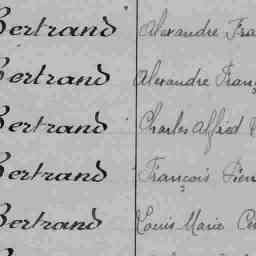 Bertrand Alexandre Fra
Bertrand Alexandre Franç
Bertrand Charles Alfred
Bertrand François Pier
Bertrand Louis Marie